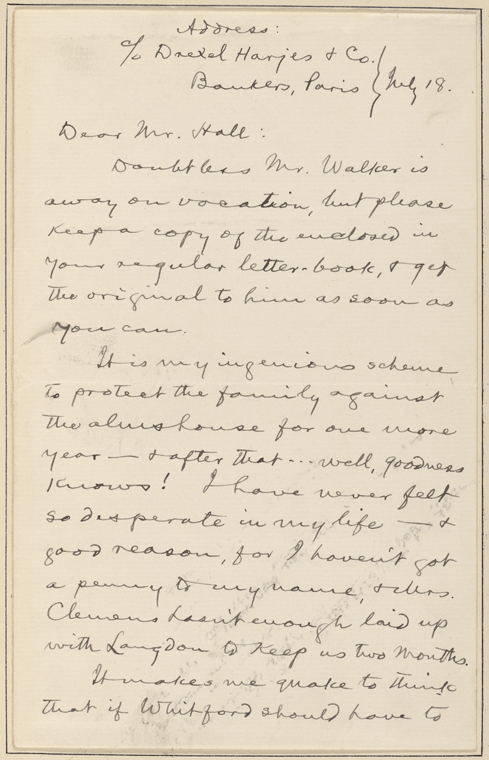 Address:
c/o Drexel Harjes & Co.
Bankers, Paris } July 18.
Dear Mr. Hall:
Doubtless Mr. Walker is
away on vacation, but please
keep a copy of the enclosed in
your regular letter-book, & get
the original to him as soon as
you can.
It is my ingenious scheme
to protect the family against
the almshouse for one more
year — & after that ... well, goodness
knows! I have never felt
so desperate in my life — &
good reason, for I haven't got
a penny to my name, & Mrs.
Clemens hasn't enough laid up
with Langdon to keep us two months.
It makes me quake to think
that if Whitford should have to